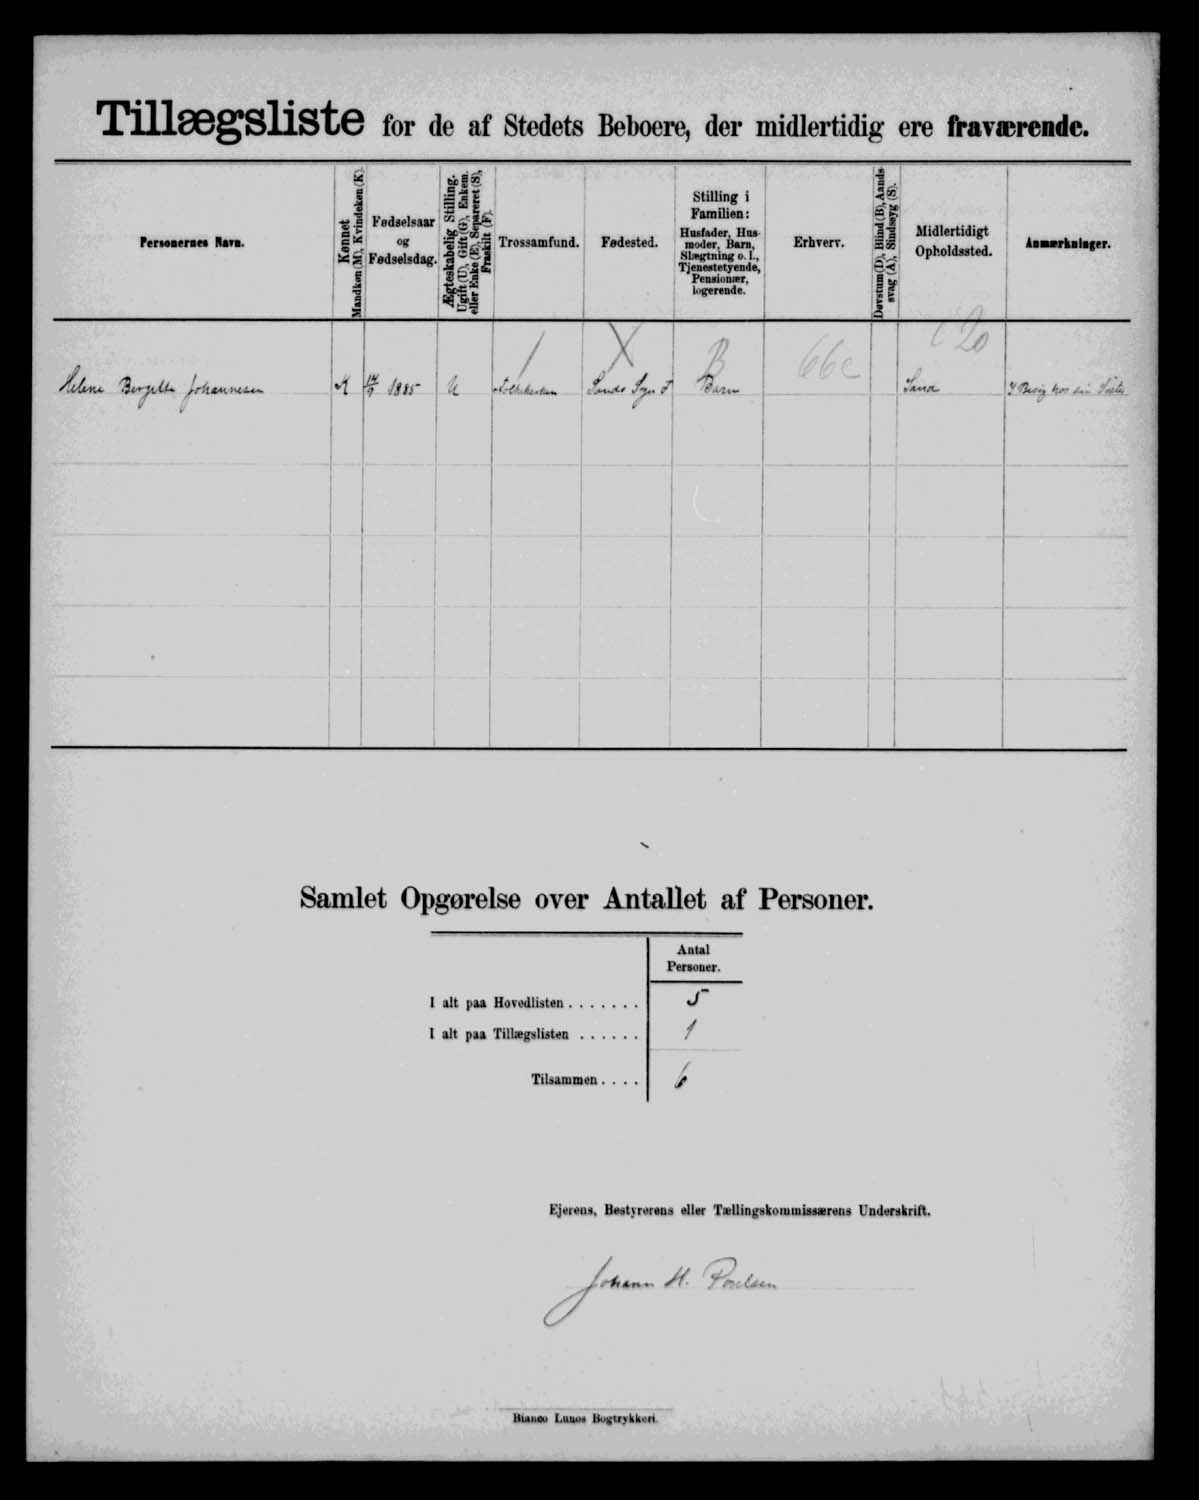 Tillægsliste for de af Stedets Beboere, der midlertidig ere fraværende.
Personernes Navn.
Kønnet
Mandkøn (M), Kvindekøn (K).
Fødselsaar
og
Fødselsdag.
Ægteskabelig Stilling.
Ugift (U), Gift (G), Enkem.
eller Enke (E), Separeret (S),
Fraskilt (F).
Trossamfund.
Fødested.
Stilling i
Familien:
Husfader, Hus-
moder, Barn,
Slægtning o. l.,
Tjenestetyende,
Pensionær,
logerende.
Erhverv.
Døvstum (D), Blind (B), Aands-
svag (A), Sindssyg (S).
Midlertidigt
Opholdssted.
Anmærkninger.
B 66c 20
Helene Bergette Johannesen K 1885 U Folkekirken Sands Sogn F Barn Sand I Besøg hos sin
Samlet Opgørelse over Antallet af Personer.
Antal
Personer.
I alt paa Hovedlisten . . . . . . . 5
I alt paa Tillægslisten . . . . . . 1
Tilsammen . . . . 6
Ejerens, Bestyrerens eller Tællingskommissærens Underskrift.
Johann H. Poulsen
Bianco Lunos Bogtrykkeri.